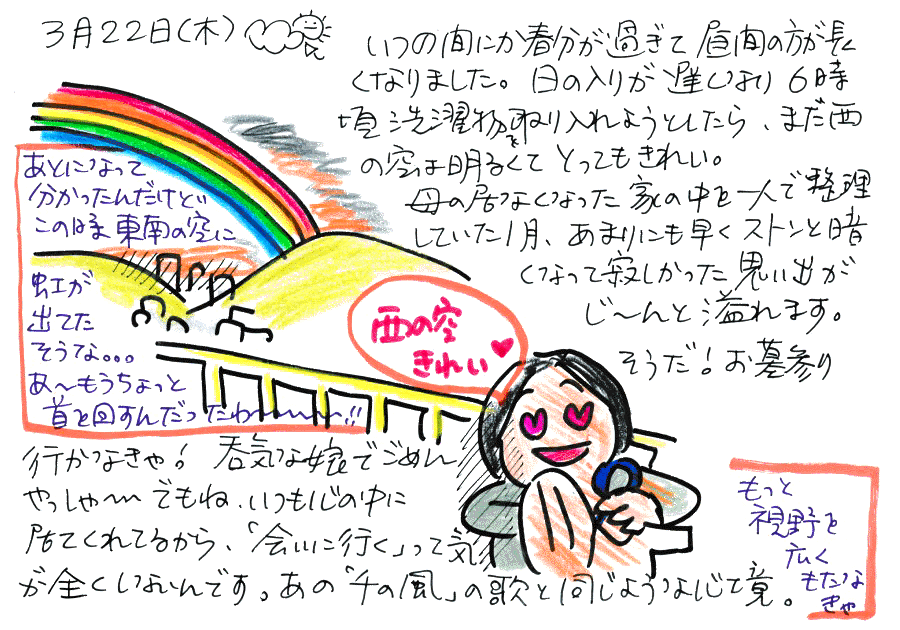 3月22日(木)
いつの間にか春分が過ぎて昼間の方が長
くなりました。日の入りが遅くなり6時
頃洗濯物を取り入れようとしたら、まだ西
の空は明るくてとってもきれい。
母の居なくなった家の中を一人で整理
していた1月、あまりにも早くストンと暗
くなって寂しかった思い出が
じ〜んと溢れます。
そうだ!お墓参り
行かなきゃ!呑気な娘でごめん
やっしゃ〜でもね、いつも心の中に
居てくれてるから、「会いに行く」って気
が全くしないんです。あの「千の風」の歌と同じような心境。
あとになって
分かったんだけど
この時東南の空に
虹が
出てた
そうな...
あ〜もうちょっと
首を回すんだったわ〜〜〜!!
西の空
きれい♥
もっと
視野を
広く
もたな
きゃ